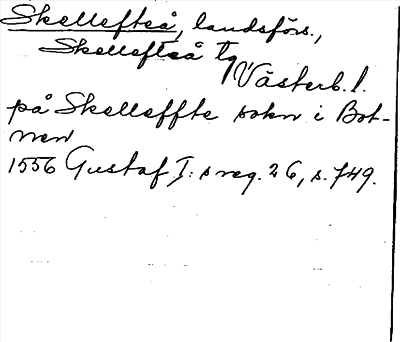 Skellefteå, landsförs.,
Skellefteå tg
Västerb. l.
på Skelleffte sokn i Bot-
nen
1556 Gustaf I:s reg. 26, s. 749.